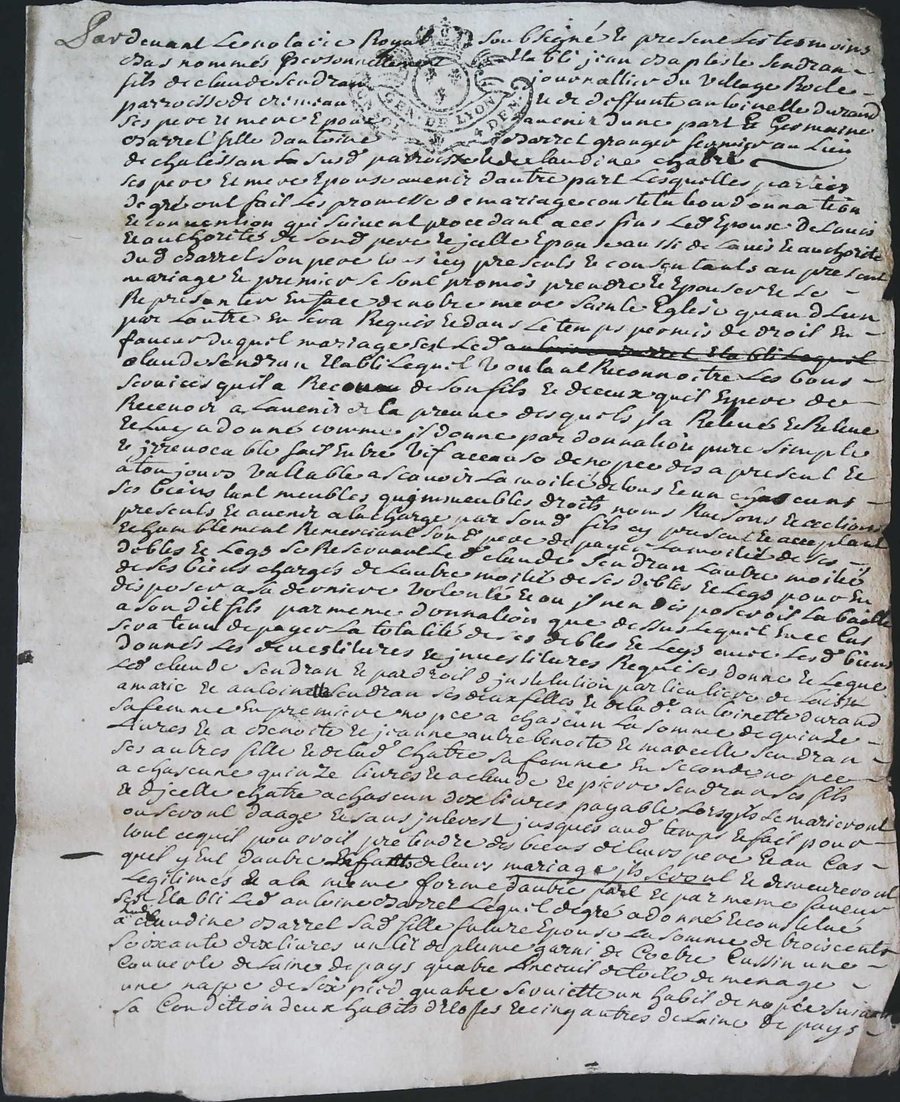 Pardevant Le notaire Royal soubsigné et presents Les temoins
bas nommés personnellement Etabli jean baptiste Sendran
fils de claude Sendran journallier du village Roche
parroisse de cremeau et de deffunte antoinette durand
GEN. DE LYON
4 DEN.
Ses pere et mere Epoux avenir dune part Et Germaine
Barrel fille dantoine Barrel granger fermier au Lieu
de chalessan La susd parroisse et de claudine chatre
Ses pere et mere Epouse avenir dautre part Lesquelles parties
de gré ont fait Les promesse de mariage constitution donnation
Et convention qui suivent procedant a ces fins Led Epoux de Lavis
Et authorité de sond pere et jcelle Epouse aussi de Lavis Et authorité
dud Barrel son pere icy presents Et consentants au present
mariage Et premier se sont promis prendre et Epouser Et se
Representer En face de notre mere Sainte Eglise quand Lun
par Lautre En sera Requis Et dans Le temps permis de droit En
faveur duquel mariage sest Led antoine Barrel Etabli Lequel
claude Sendran Etabli Lequel voulant Reconnoitre Les bons
services quil a Receu de son fils Et de ceux quil Espere de
Recevoir a Lavenir de la preuve desquels jl a Relevé Et Releve
Et Luy a donné comme jl donne par donnation pure simple
Et jrrevocable fait Entre vif a cause de nopce des a present Et
a toujours vallable a scavoir La moitié de tous Et un chascuns
Ses biens tant meubles qu jmmeubles droits noms Raisons Et actions
presents Et avenir a la charge par sond fils cy present Et acceptant
Et humblement Remerciant sond pere de payer La moitié de ses
debtes Et Legs se Reservant Led claude Sendran Lautre moitié
de ses biens chargés de Lautre moitié de ses debtes Et Legs pour En
disposer a sa derniere volonté Et ou jl nen disposeroit La baille
a son dit fils par meme donnation que dessus Lequel En ce cas
sera tenu de payer La totalité de ses debtes Et Legs avec Les d biens
donnés Les devestitures Et jnvestitures Requises donne Et Legue
Led claude Sendran Et par droit d jnstitution particuliere de Laisse
a marie Et antoinette Sendran Ses deux filles Et de lad antoinette durand
Sa femme En premiere nopce a chascun La somme de quinze
Livres Et a benoite Et jeanne autre benoite Et marcelle Sendran
Ses autres fille Et de lad chatre Sa femme En seconde nopce
a chascune quinze livres Et a claude Et pierre Sendran Ses fils
Et djcelle chatre a chascun dix livres payable Lorsqu jls Se marieront
ou seront daage Et sans jnterest jusques aud temps Et fait pour
tout ce quil pourroit pretendre des biens de leurs pere Et au cas
quil y Eut dautre de leurs mariage jls seront Et demeureront
Legitimés Et a la meme forme dautre part Et par meme faveur
Sest Etabli Led antoine Barrel Lequel de gré a donné Et constitué
a claudine Barrel Sad fille future Epouse La somme de trois cents
soixante dix livres un lit de plume garni de Coetre Cussin une
Couverte de Laine de pays quatre Linceuil de toile de menage
une nappe de Six pied quatre serviette un habit de nopce suivant
sa Condition deux habits d'Etoffes Et cinq autres de Laine de pays